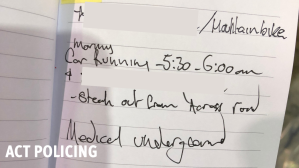 /Mountainbike
morning
Car Running - 5:30 - 6:00am
- Steak out from 'Across' road
Medical underground
ACT POLICING